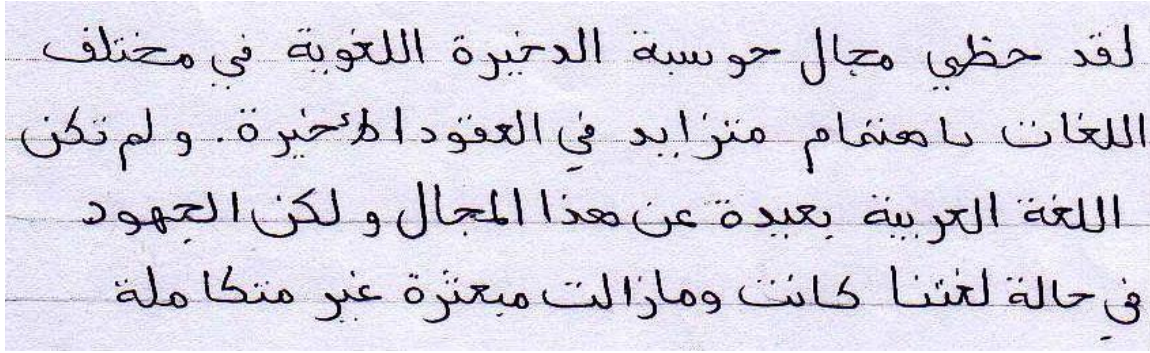 لقد حظي مجال حوسبة الدخيرة اللغوية في مختلف
اللغات باهتمام متزايد في العقود الأخيرة. ولم تكن
اللغة العربية بعيدة عن هذا المجال ولكن الجهود
في حالة لغتنا كانت ومازالت مبعثرة غير متكاملة